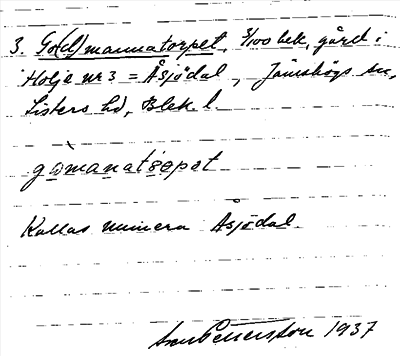 3. Go(d)mannatorpet, 3/100 bek. gård i
Holje nr 3 = Åsjödal, Jämshögs sn,
Listers hd, Blek. l.
gomanatorpet
Kallas numera Åsjödal.
1937